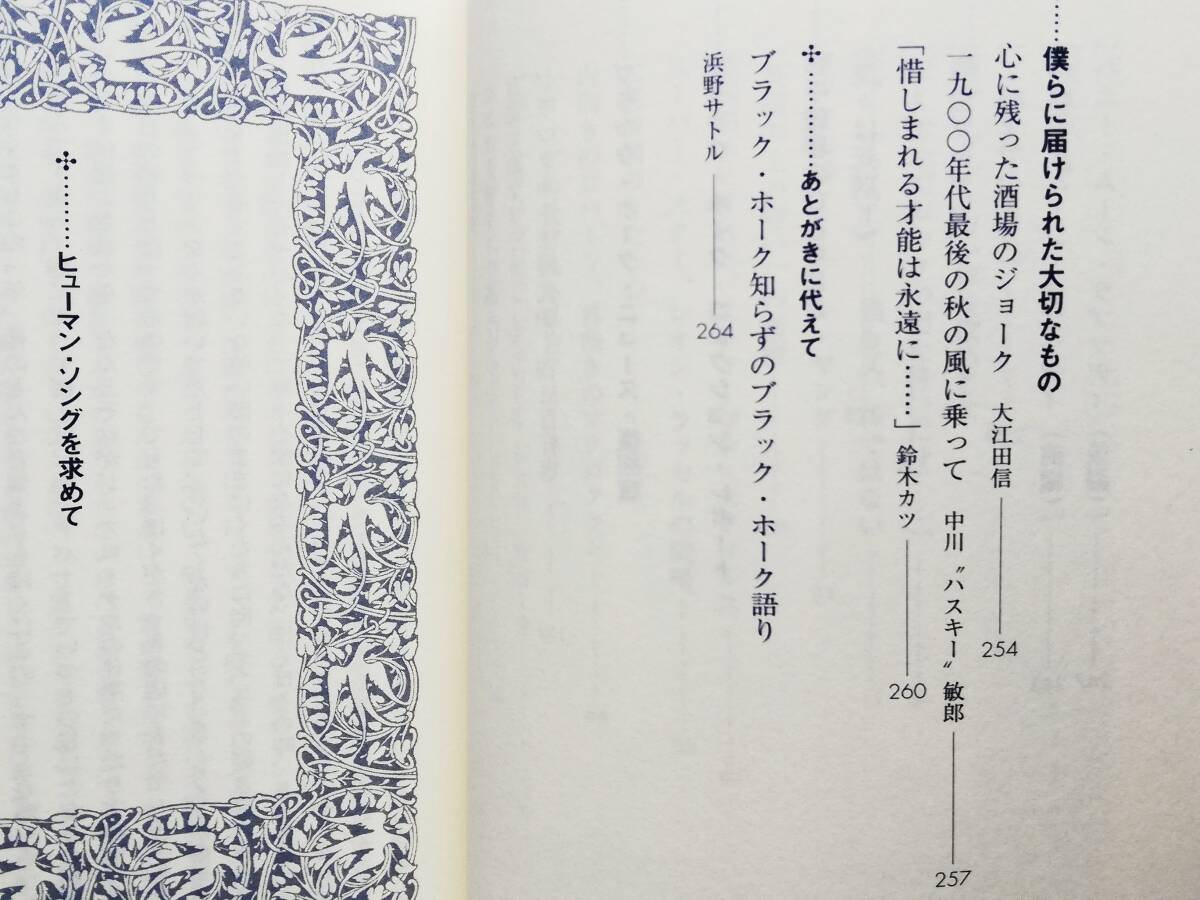 …… 僕らに届けられた大切なもの
心に残った酒場のジョーク 大江田信 254
一九〇〇年代最後の秋の風に乗って 中川〝ハスキー〟敏郎 257
「惜しまれる才能は永遠に……」 鈴木カツ 260
✣…………あとがきに代えて
ブラック・ホーク知らずのブラック・ホーク語り
浜野サトル 264
✣…………ヒューマン・ソングを求めて